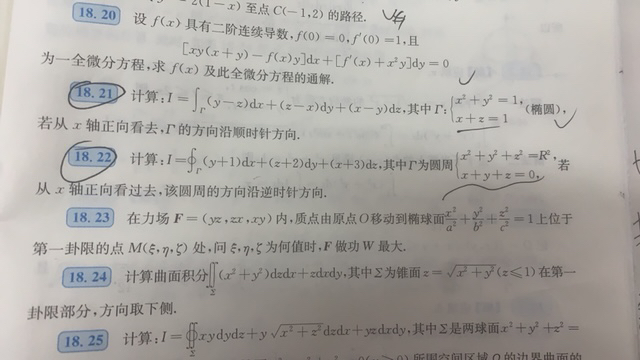 2(1−x) 至点 C(−1,2) 的路径.
18.20 设 f(x) 具有二阶连续导数, f(0)=0, f′(0)=1, 且
[xy(x+y)−f(x)y]dx+[f′(x)+x²y]dy=0
为一全微分方程, 求 f(x) 及此全微分方程的通解.
18.21 计算: I=∫_Γ (y−z)dx+(z−x)dy+(x−y)dz, 其中 Γ: { x²+y²=1, x+z=1 (椭圆),
若从 x 轴正向看去, Γ 的方向沿顺时针方向.
18.22 计算: I=∮_Γ (y+1)dx+(z+2)dy+(x+3)dz, 其中 Γ 为圆周 { x²+y²+z²=R², x+y+z=0, 若
从 x 轴正向看过去, 该圆周的方向沿逆时针方向.
18.23 在力场 F=(yz,zx,xy) 内, 质点由原点 O 移动到椭球面 x²/a²+y²/b²+z²/c²=1 上位于
第一卦限的点 M(ξ,η,ζ) 处, 问 ξ,η,ζ 为何值时, F 做功 W 最大.
18.24 计算曲面积分∬_Σ (x²+y²)dzdx+zdxdy, 其中 Σ 为锥面 z=√(x²+y²) (z≤1) 在第一
卦限部分, 方向取下侧.
18.25 计算: I=∯_Σ xydydz+y√(x²+z²)dzdx+yzdxdy, 其中 Σ 是两球面 x²+y²+z²=
所围空间区域 Ω 的边界曲面的